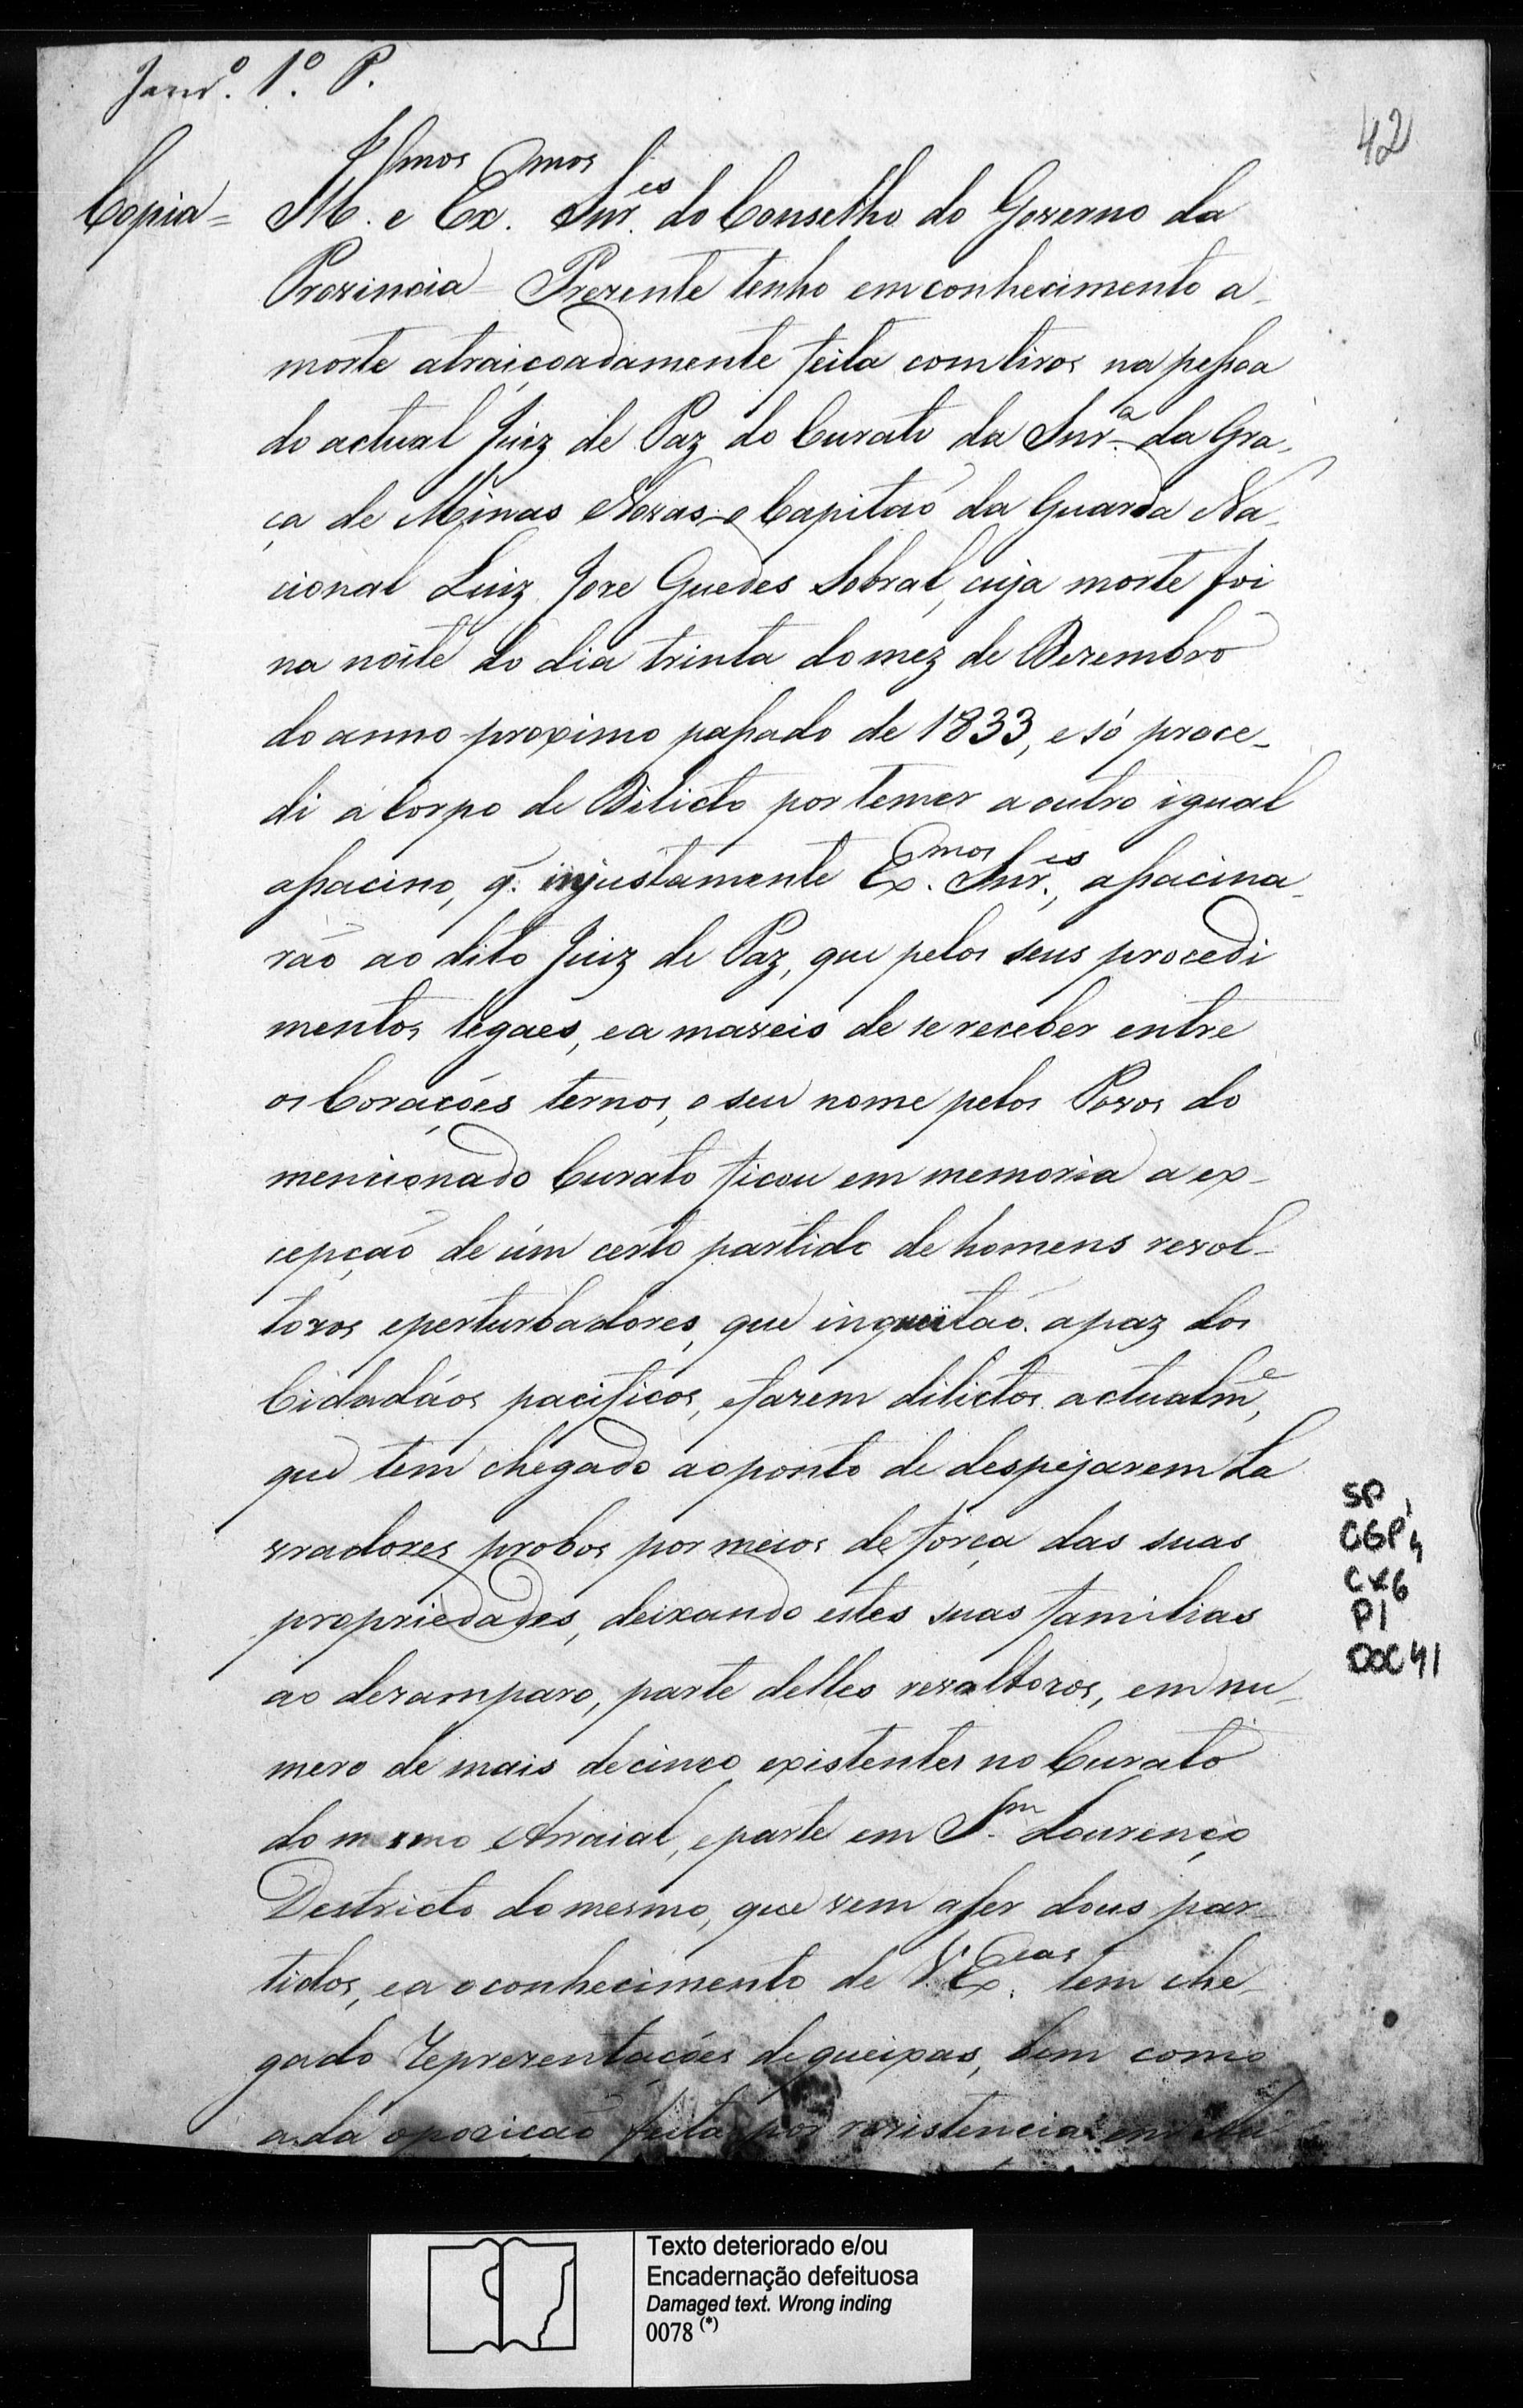 Janr.º 1.º P.
42
Copia = Ill.mos e Ex.mos Snr.es do Conselho do Governo da
Provincia = Prezente tenho em conhecimento a
morte atraiçoadamente feita com tiros na peſsoa
do actual Juiz de Paz do Curato da Snr.a da Gra-
ça de Minas Novas, o Capitaõ da Guarda Na-
cional Luiz Joze Guedes Sobral, cuja morte foi
na noite do dia trinta do mez de Dezembro
do anno proximo paſsado de 1833, e só proce-
di a Corpo de Dilicto por temer a outro igual
aſsacino, q. injustamente Ex.mos Snr.es, aſsacina-
rão ao dito Juiz de Paz, que pelos seus procedi
mentos legaes, e a maveis de se receber entre
os Corações ternos, o seu nome pelos Povos do
mencionado Curato ficou em memoria a ex-
cepção de úm certo partido de homens revol-
tozos e perturbadores, que inquietaõ a paz dos
Cidadáos pacificos, e fazem dilictos actualm.e,
que tem chegado ao ponto de despejarem La
vradores probos por meios de força das suas
propriedades, deixando estes suas familias
ao dezamparo, parte delles revoltozos, em nu-
mero de mais de cinco existentes no Curato
do mesmo Arraial, e parte em S.m Lourenço
Destricto do mesmo, que vem a ser dous par-
tidos, e a o conhecimento de V. Ex.cias tem che-
gado reprezentações de queixas, bem como
a da opozicaõ feita por rezistencia em
SP
CGP4
CX6
P1
DOC 41
Texto deteriorado e/ou
Encadernação defeituosa
Damaged text. Wrong inding
0078 (*)